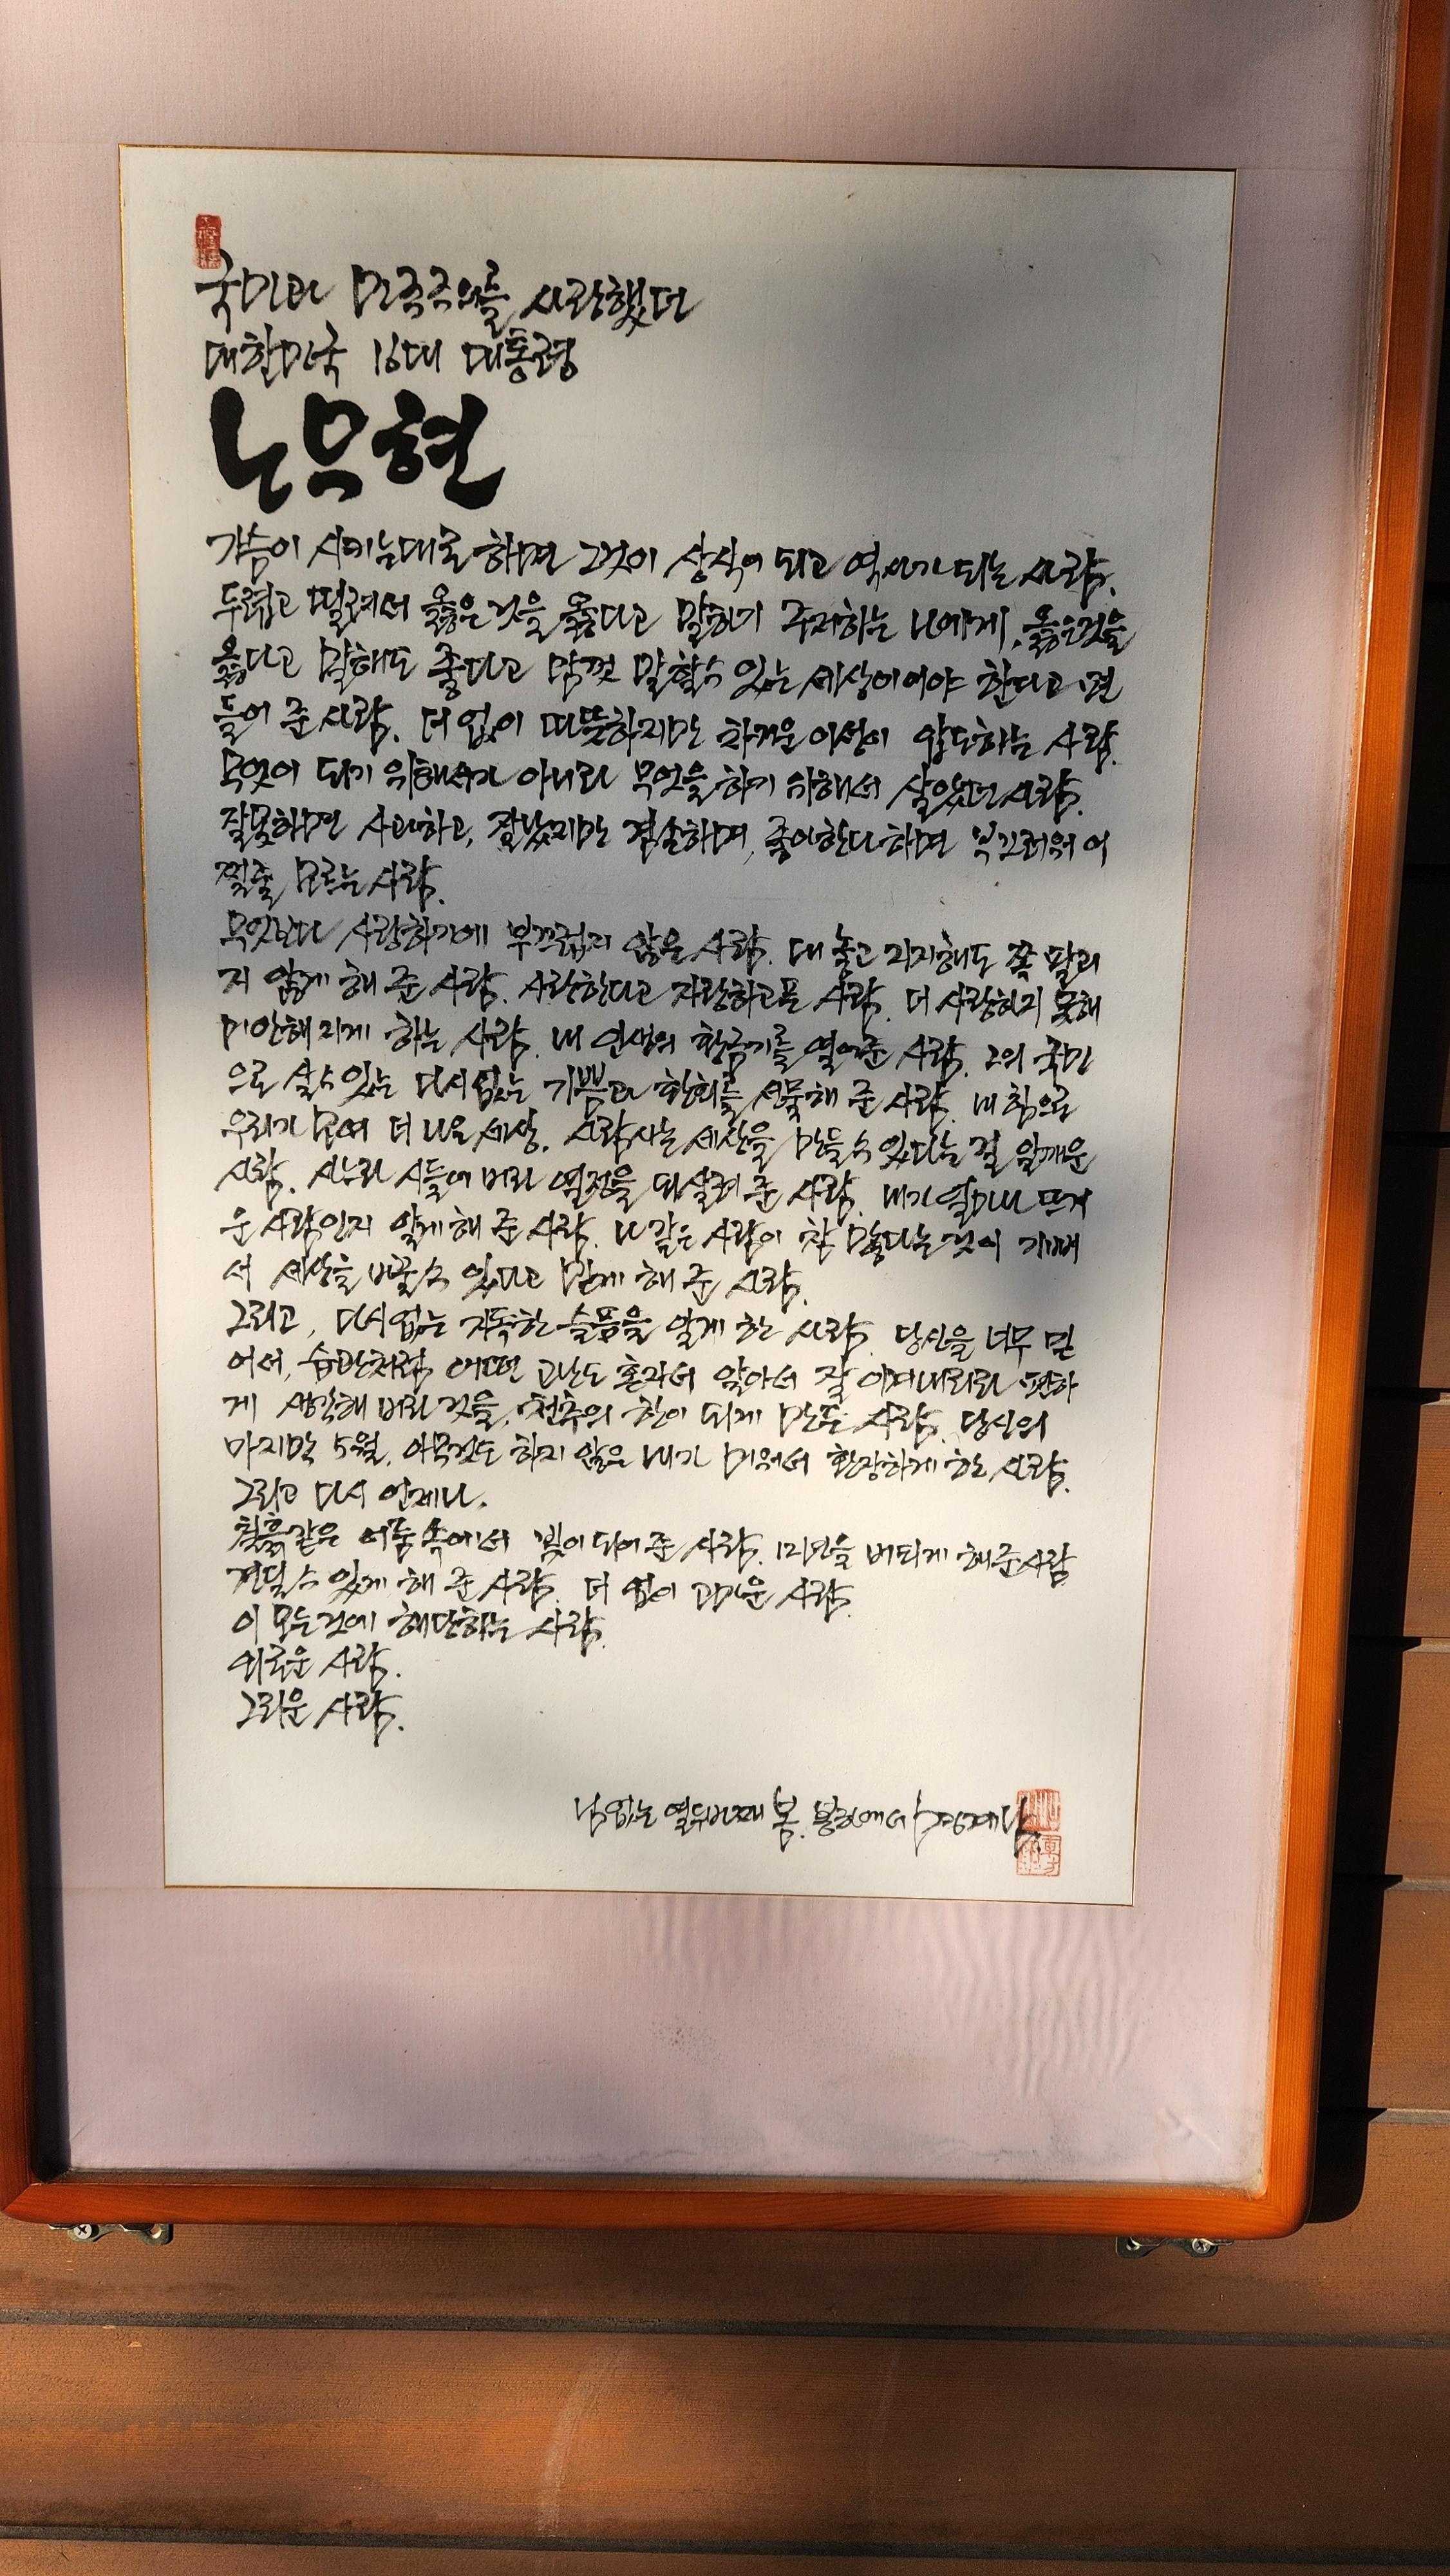 국민과 민주주의를 사랑했던
대한민국 16대 대통령
노무현
가슴이 시키는대로 하면 그것이 상식이 되고 역사가 되는 사람.
두렵고 떨려서 옳은 것을 옳다고 말하기 주저하는 나에게, 옳은것을
옳다고 말해도 좋다고 맘껏 말할수 있는 세상이어야 한다고 편
들어 준 사람. 더 없이 따뜻하지만 차가운 이성이 압도하는 사람.
무엇이 되기 위해서가 아니라 무엇을 하기 위해서 살았던 사람.
잘못하면 사과하고, 잘났지만 겸손하며, 좋아한다 하면 부끄러워 어
쩔줄 모르는 사람.
무엇보다 사랑하기에 부끄럽지 않은 사람. 대 놓고 지지해도 쪽 팔리
지 않게 해 준 사람. 사랑한다고 자랑하고픈 사람. 더 사랑하지 못해
미안해지게 하는 사람. 내 인생의 황금기를 열어준 사람. 그의 국민
으로 살수 있는 다시 없는 기쁨과 환희를 선물해 준 사람. 내 힘으로
우리가 모여 더 나은 세상. 사람사는 세상을 만들수 있다는 걸 일깨운
사람. 사그라 시들어 버린 열정을 되살려 준 사람. 내가 얼마나 뜨거
운 사람인지 알게 해 준 사람. 나 같은 사람이 참 많다는 것이 기뻐
서 세상을 바꿀수 있다고 믿게 해 준 사람.
그리고, 다시 없는 지독한 슬픔을 알게 한 사람. 당신을 너무 믿
어서, 습관처럼 어떤 고난도 혼자서 알아서 잘 이겨내리라 편하
게 생각해 버린 것을, 천추의 한이 되게 만든 사람. 당신의
마지막 5월. 아무것도 하지 않은 내가 미워서 환장하게 한 사람.
그리고 다시 언제나.
칠흙같은 어둠 속에서 빛이 되어 준 사람. 미련을 버티게 해준사람
견딜수 있게 해 준 사람. 더 없이 고마운 사람.
이 모든것에 해당하는 사람.
외로운 사람.
그리운 사람.
님 없는 열두번째 봄. 봉하에서